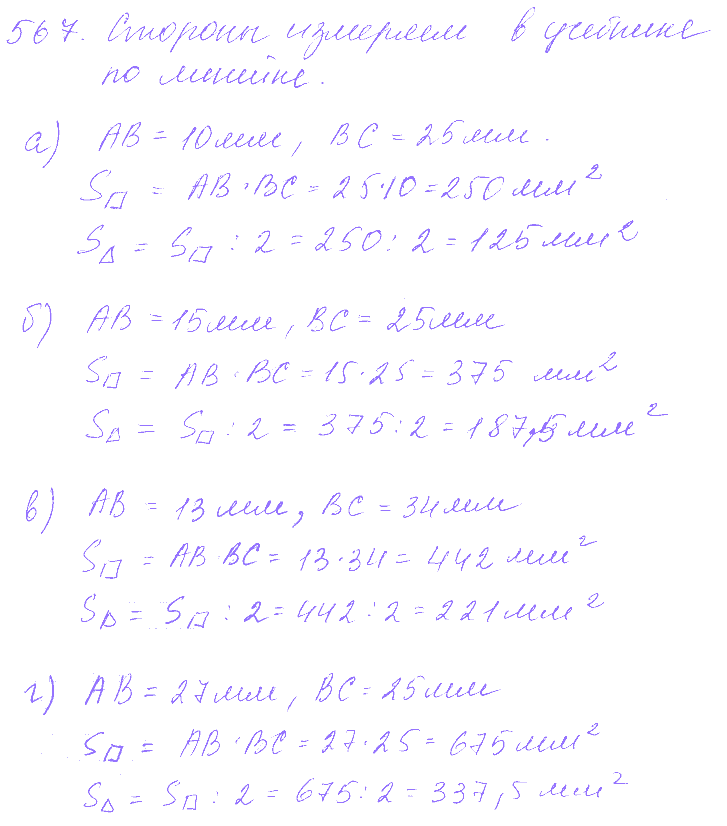 567. Стороны измеряем в учебнике
по линейке.
а) AB = 10мм, BC = 25мм.
S▱ = AB · BC = 25·10 = 250 мм²
S△ = S▱ : 2 = 250 : 2 = 125 мм²
б) AB = 15мм, BC = 25мм
S▱ = AB · BC = 15·25 = 375 мм²
S△ = S▱ : 2 = 375 : 2 = 187,5 мм²
в) AB = 13 мм, BC = 34мм
S▱ = AB · BC = 13·34 = 442 мм²
S△ = S▱ : 2 = 442 : 2 = 221 мм²
г) AB = 27мм, BC = 25мм
S▱ = AB · BC = 27·25 = 675 мм²
S△ = S▱ : 2 = 675 : 2 = 337,5 мм²